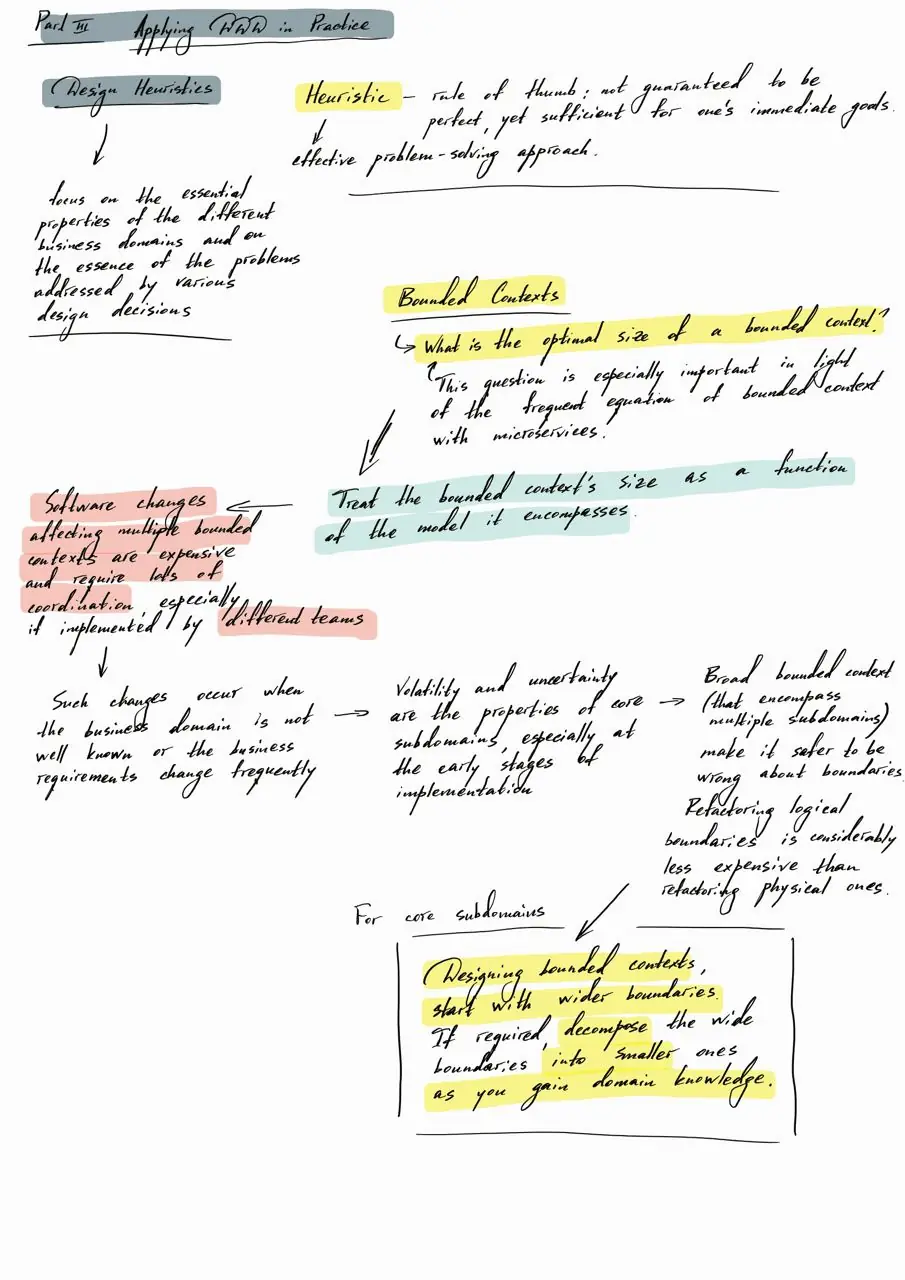 Part III Applying DDD in Practice
Design Heuristics
focus on the essential
properties of the different
business domains and on
the essence of the problems
addressed by various
design decisions
Heuristic – rule of thumb; not guaranteed to be
perfect, yet sufficient for one's immediate goals.
effective problem-solving approach.
Bounded Contexts
What is the optimal size of a bounded context?
This question is especially important in light
of the frequent equation of bounded context
with microservices.
Treat the bounded context's size as a function
of the model it encompasses.
Software changes
affecting multiple bounded
contexts are expensive
and require lots of
coordination, especially
if implemented by different teams
Such changes occur when
the business domain is not
well known or the business
requirements change frequently
Volatility and uncertainty
are the properties of core
subdomains, especially at
the early stages of
implementation
Broad bounded context
(that encompass
multiple subdomains)
make it safer to be
wrong about boundaries.
Refactoring logical
boundaries is considerably
less expensive than
refactoring physical ones.
For core subdomains
Designing bounded contexts,
start with wider boundaries.
If required, decompose the wide
boundaries into smaller ones
as you gain domain knowledge.